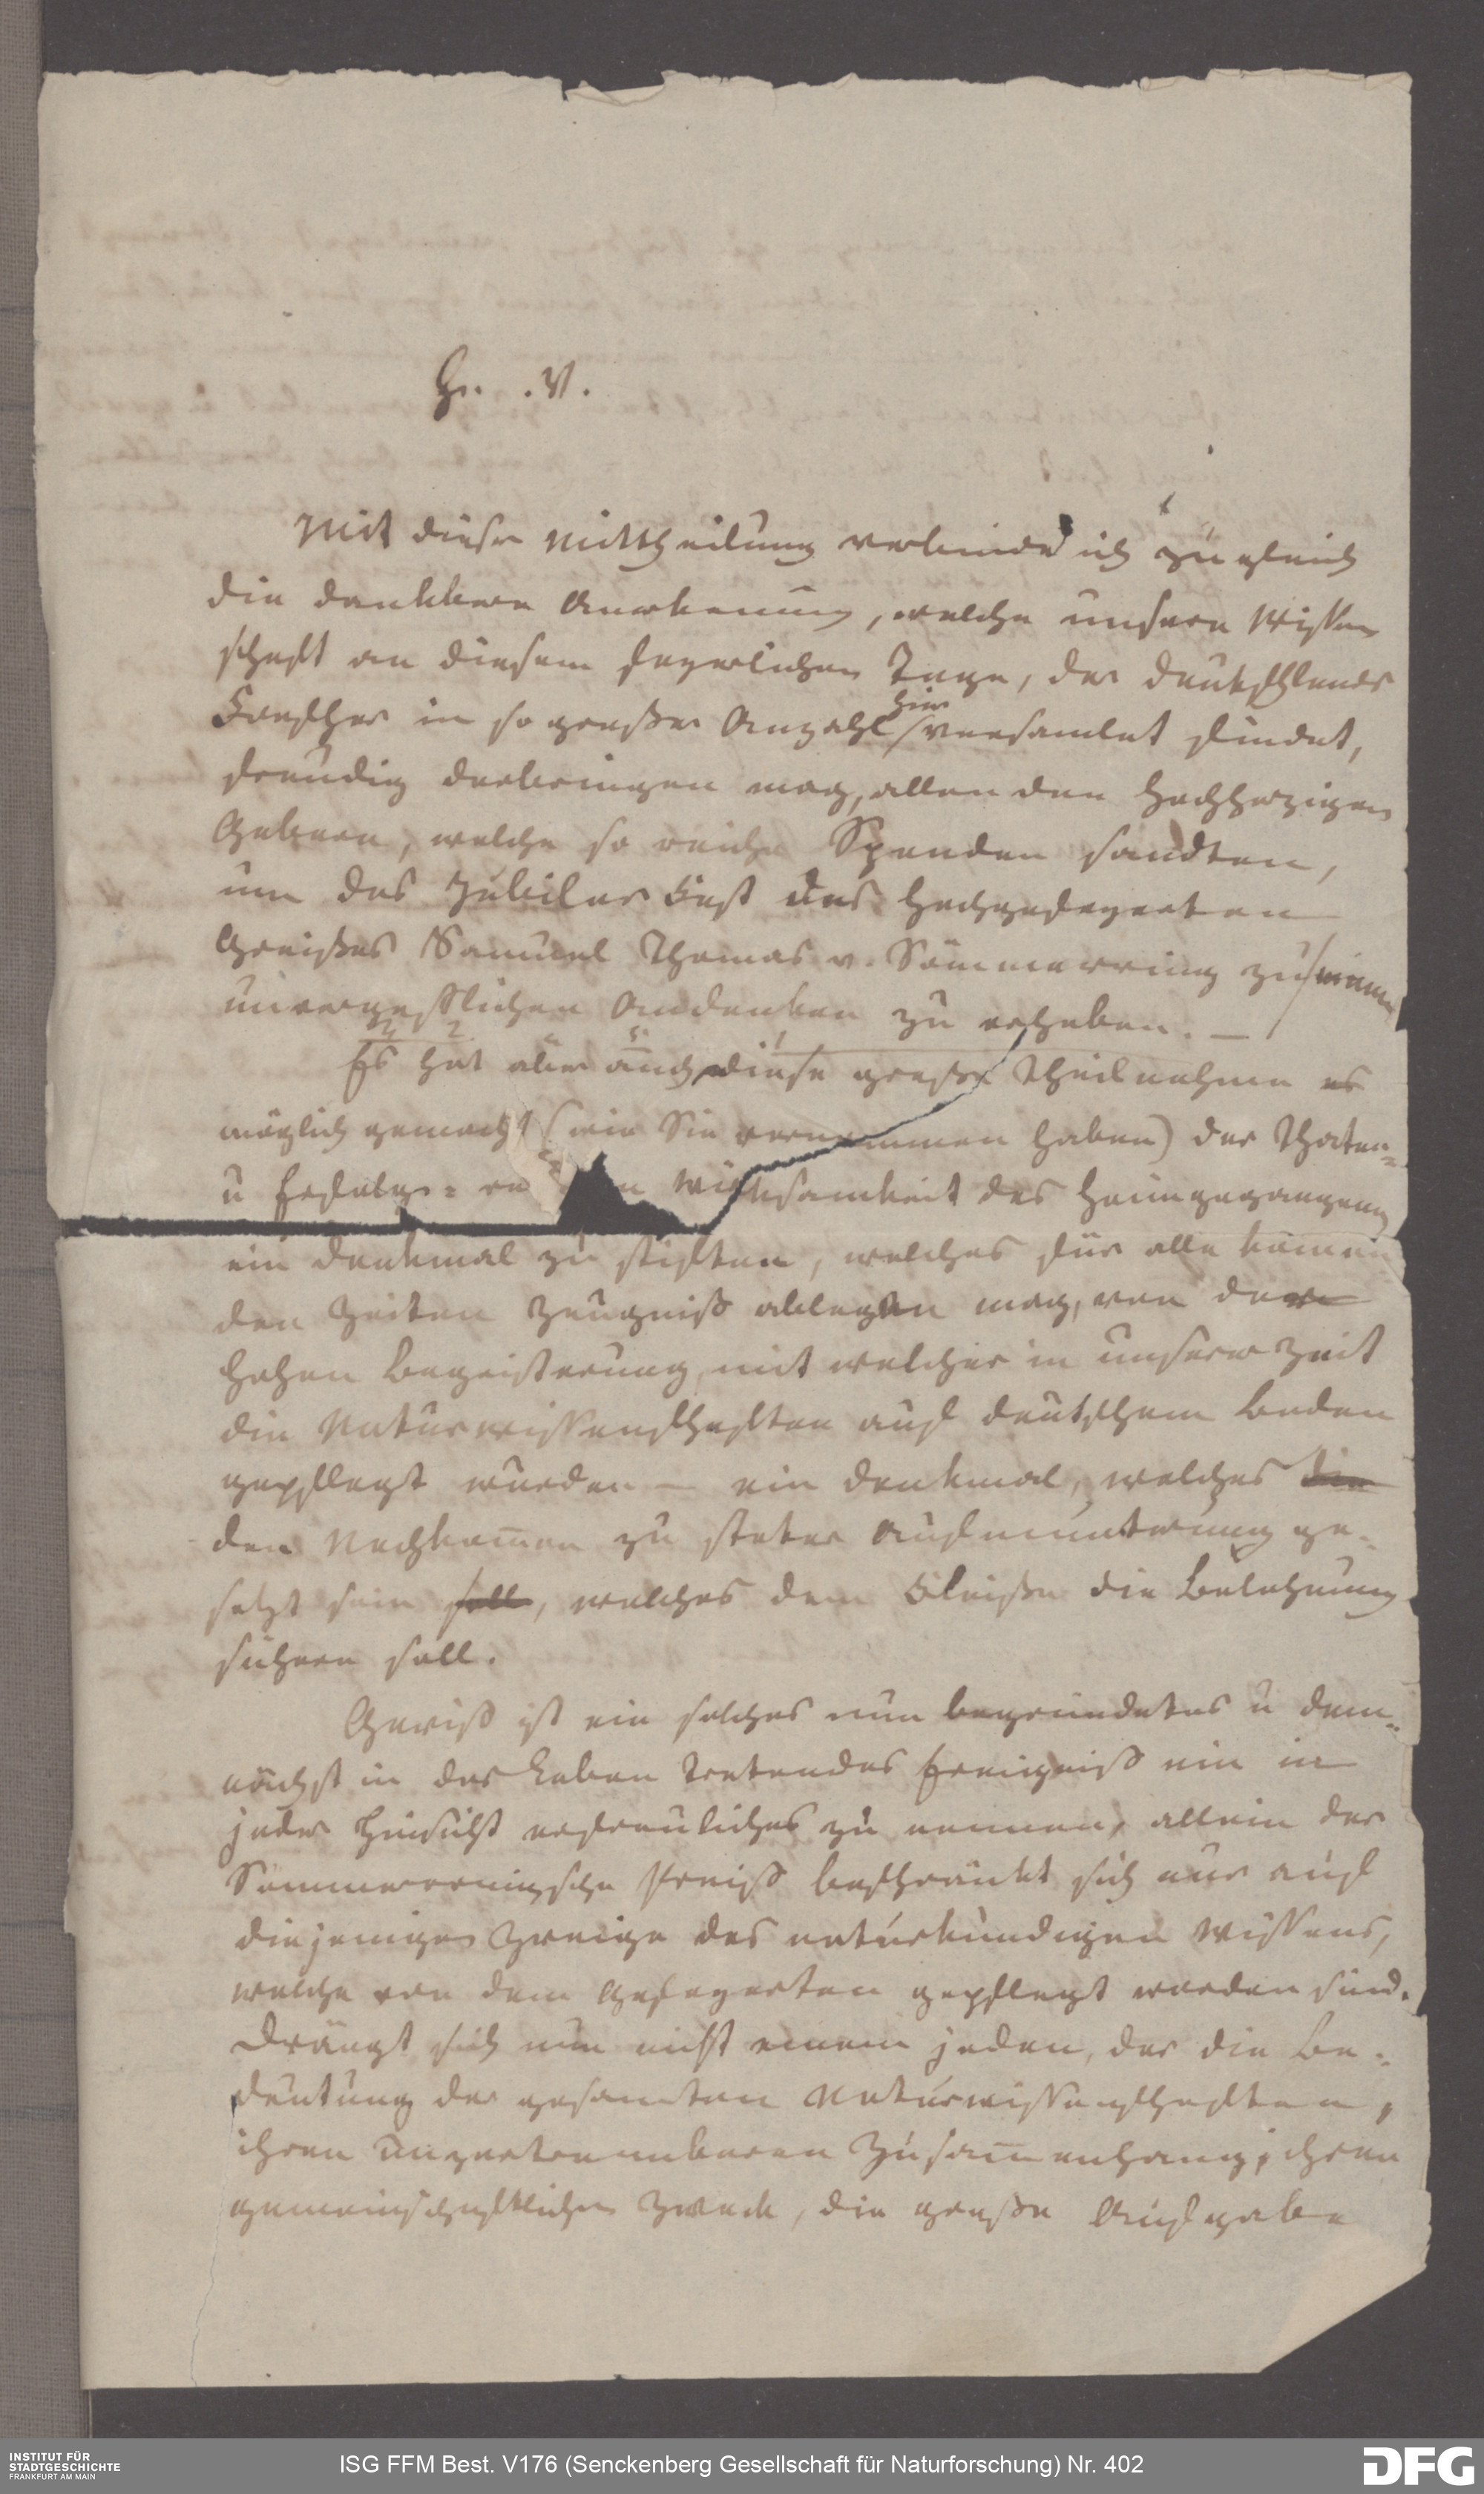 H. V.
Mit dieser Mittheilung verbinde ich zugleich
die dankbare Anerkennung, welche unsere Wissen
schaft an diesem feyerlichen Tage, der Deutschlands
Forscher in so großer Anzahl hier versamlet findet,
freudig darbringen mag, allen den hochherzigen
Gebern, welche so reiche Spenden sandten,
um das Jubilar Fest des hochgefeyerten
Greißes Samuel Thomas v. Sömmerring zu einem
unvergesslichen Andenken zu erheben. —
Es hat aber auch diese große Theilnahme es
möglich gemacht (wie Sie vernommen haben) der Thaten-
u Erfolg- Wirksamkeit des Heimgegangenen
ein Denkmal zu stiften, welches für alle kommen
den Zeiten Zeugniß ablegen mag, von der
hohen Begeisterung mit welcher in unserer Zeit
die Naturwissenschaften auf deutschem Boden
gepflegt wurden – ein Denkmal, welches die
den Nachkommen zu steter Aufmunterung ge-
setzt sein soll, welches dem Fleiße die Belohnung
führen soll.
Gewiß ist ein solches nun begründetes u dem-
nächst in das Leben tretendes Ereigniß ein in
jeder Hinsicht erfreuliches zu nennen, allein der
Sömmerringsche Preiß beschränkt sich nur auf
diejenigen Zweige des naturkundigen Wissens,
welche von dem Gefeyerten gepflegt worden sind.
Drängt sich nun nicht einem jeden, der die Be-
deutung der gesamten Naturwissenschaften,
ihren unzertrennbaren Zusammenhang, ihren
gemeinschaftlichen Zweck, die große Aufgabe
INSTITUT FÜR
STADTGESCHICHTE
FRANKFURT AM MAIN
ISG FFM Best. V176 (Senckenberg Gesellschaft für Naturforschung) Nr. 402
DFG